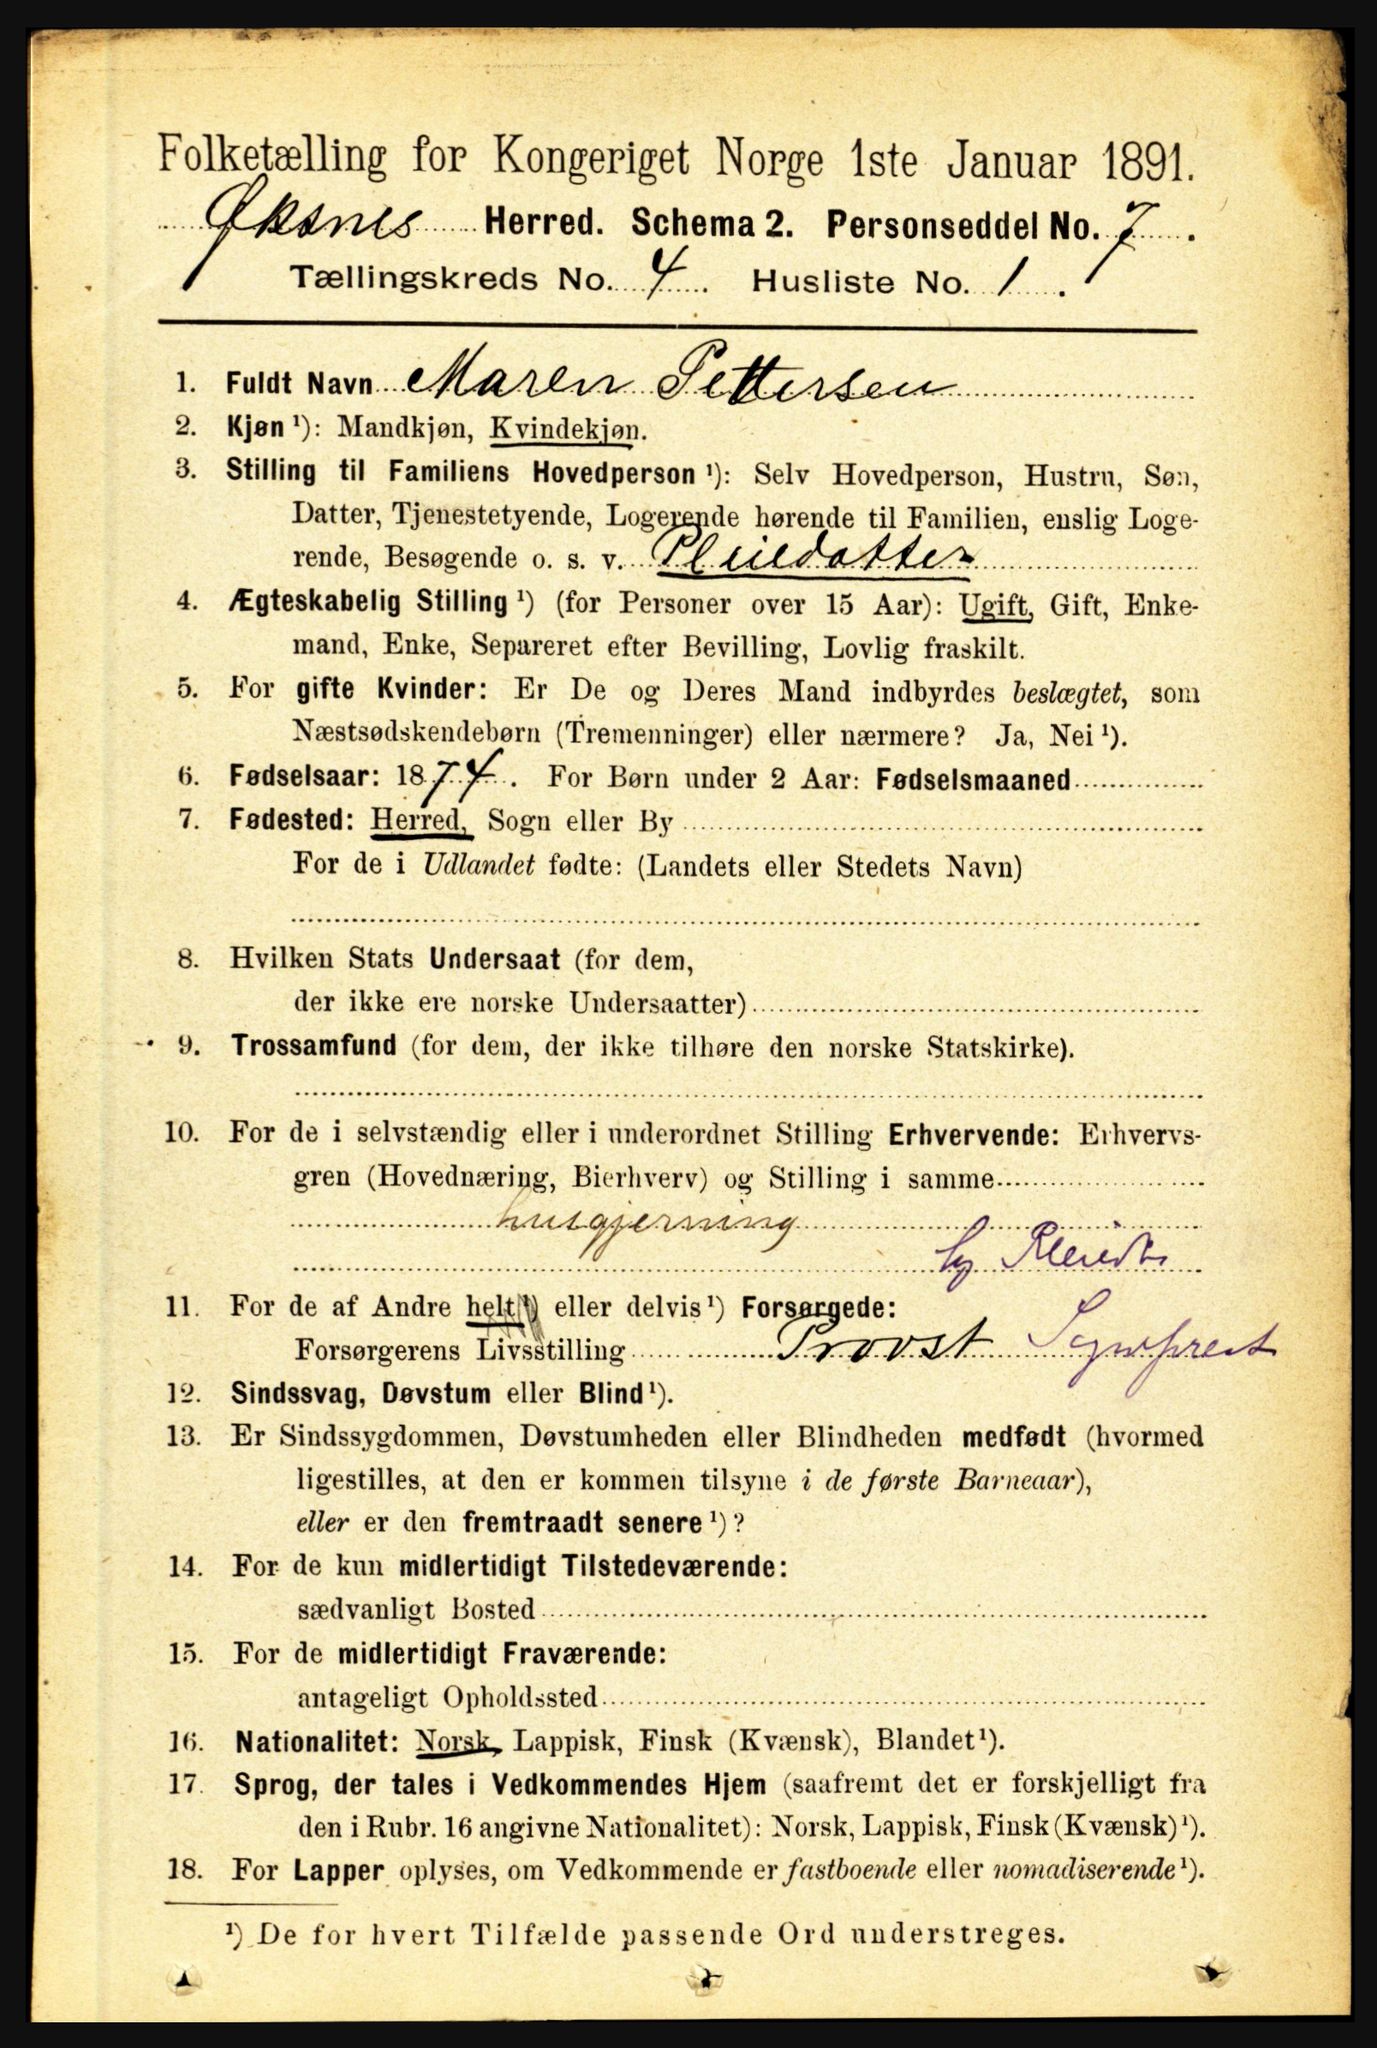 Folketælling for Kongeriget Norge 1ste Januar 1891.
Øksnes Herred. Schema 2. Personseddel No. 7.
Tællingskreds No. 4. Husliste No. 1.
1. Fuldt Navn Maren Pettersen
2. Kjøn ¹): Mandkjøn, Kvindekjøn.
3. Stilling til Familiens Hovedperson ¹): Selv Hovedperson, Hustru, Søn,
Datter, Tjenestetyende, Logerende hørende til Familien, enslig Loge-
rende, Besøgende o. s. v. Pleiedatter
4. Ægteskabelig Stilling ¹) (for Personer over 15 Aar): Ugift, Gift, Enke-
mand, Enke, Separeret efter Bevilling, Lovlig fraskilt.
5. For gifte Kvinder: Er De og Deres Mand indbyrdes beslægtet, som
Næstsødskendebørn (Tremenninger) eller nærmere? Ja, Nei ¹).
6. Fødselsaar: 1874. For Børn under 2 Aar: Fødselsmaaned
7. Fødested: Herred, Sogn eller By
For de i Udlandet fødte: (Landets eller Stedets Navn)
8. Hvilken Stats Undersaat (for dem,
der ikke ere norske Undersaatter)
9. Trossamfund (for dem, der ikke tilhøre den norske Statskirke).
10. For de i selvstændig eller i underordnet Stilling Erhvervende: Erhvervs-
gren (Hovednæring, Bierhverv) og Stilling i samme
husgjerning
11. For de af Andre helt ¹) eller delvis ¹) Forsørgede:
Forsørgerens Livsstilling Provst Sognprest
12. Sindssvag, Døvstum eller Blind ¹).
13. Er Sindssygdommen, Døvstumheden eller Blindheden medfødt (hvormed
ligestilles, at den er kommen tilsyne i de første Barneaar),
eller er den fremtraadt senere ¹)?
14. For de kun midlertidigt Tilstedeværende:
sædvanligt Bosted
15. For de midlertidigt Fraværende:
antageligt Opholdssted
16. Nationalitet: Norsk, Lappisk, Finsk (Kvænsk), Blandet ¹).
17. Sprog, der tales i Vedkommendes Hjem (saafremt det er forskjelligt fra
den i Rubr. 16 angivne Nationalitet): Norsk, Lappisk, Finsk (Kvænsk) ¹).
18. For Lapper oplyses, om Vedkommende er fastboende eller nomadiserende ¹).
¹) De for hvert Tilfælde passende Ord understreges.